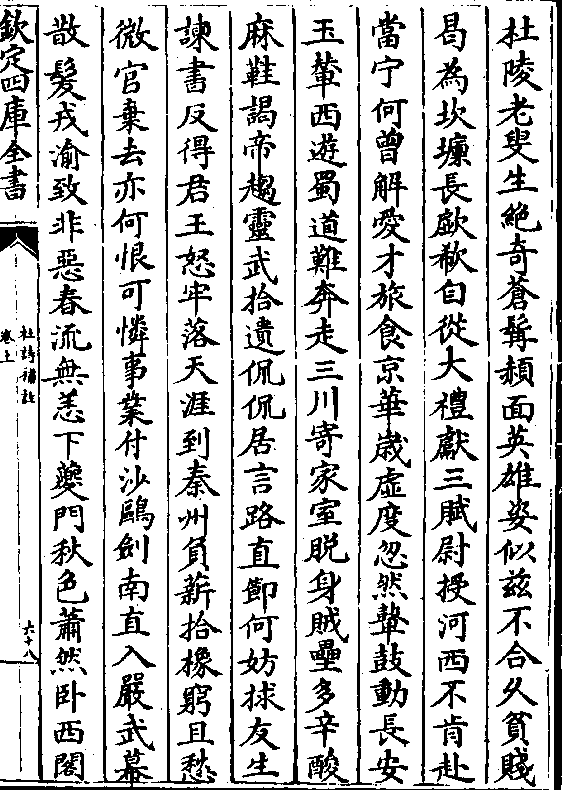 杜陵老叟生絶奇蒼髯赬面英雄姿似兹不合久貧賤
曷為坎壈長歔欷自從大禮獻三賦尉授河西不肯赴
當宁何曾解愛才旅食京華歳虚度忽然鼙鼓動長安
玉輦西遊蜀道難奔走三川寄家室脱身賊壘多辛酸
麻鞋謁帝趨靈武拾遺侃侃居言路直節何妨捄友生
諫書反得君王怒牢落天涯到秦州負薪拾橡窮且愁
微官棄去亦何恨可憐事業付沙鷗劍南直入嚴武幕
散髮戎渝致非惡春流無恙下夔門秋色蕭然卧西閣
欽定四庫全書
杜詩攟
卷上
六十八